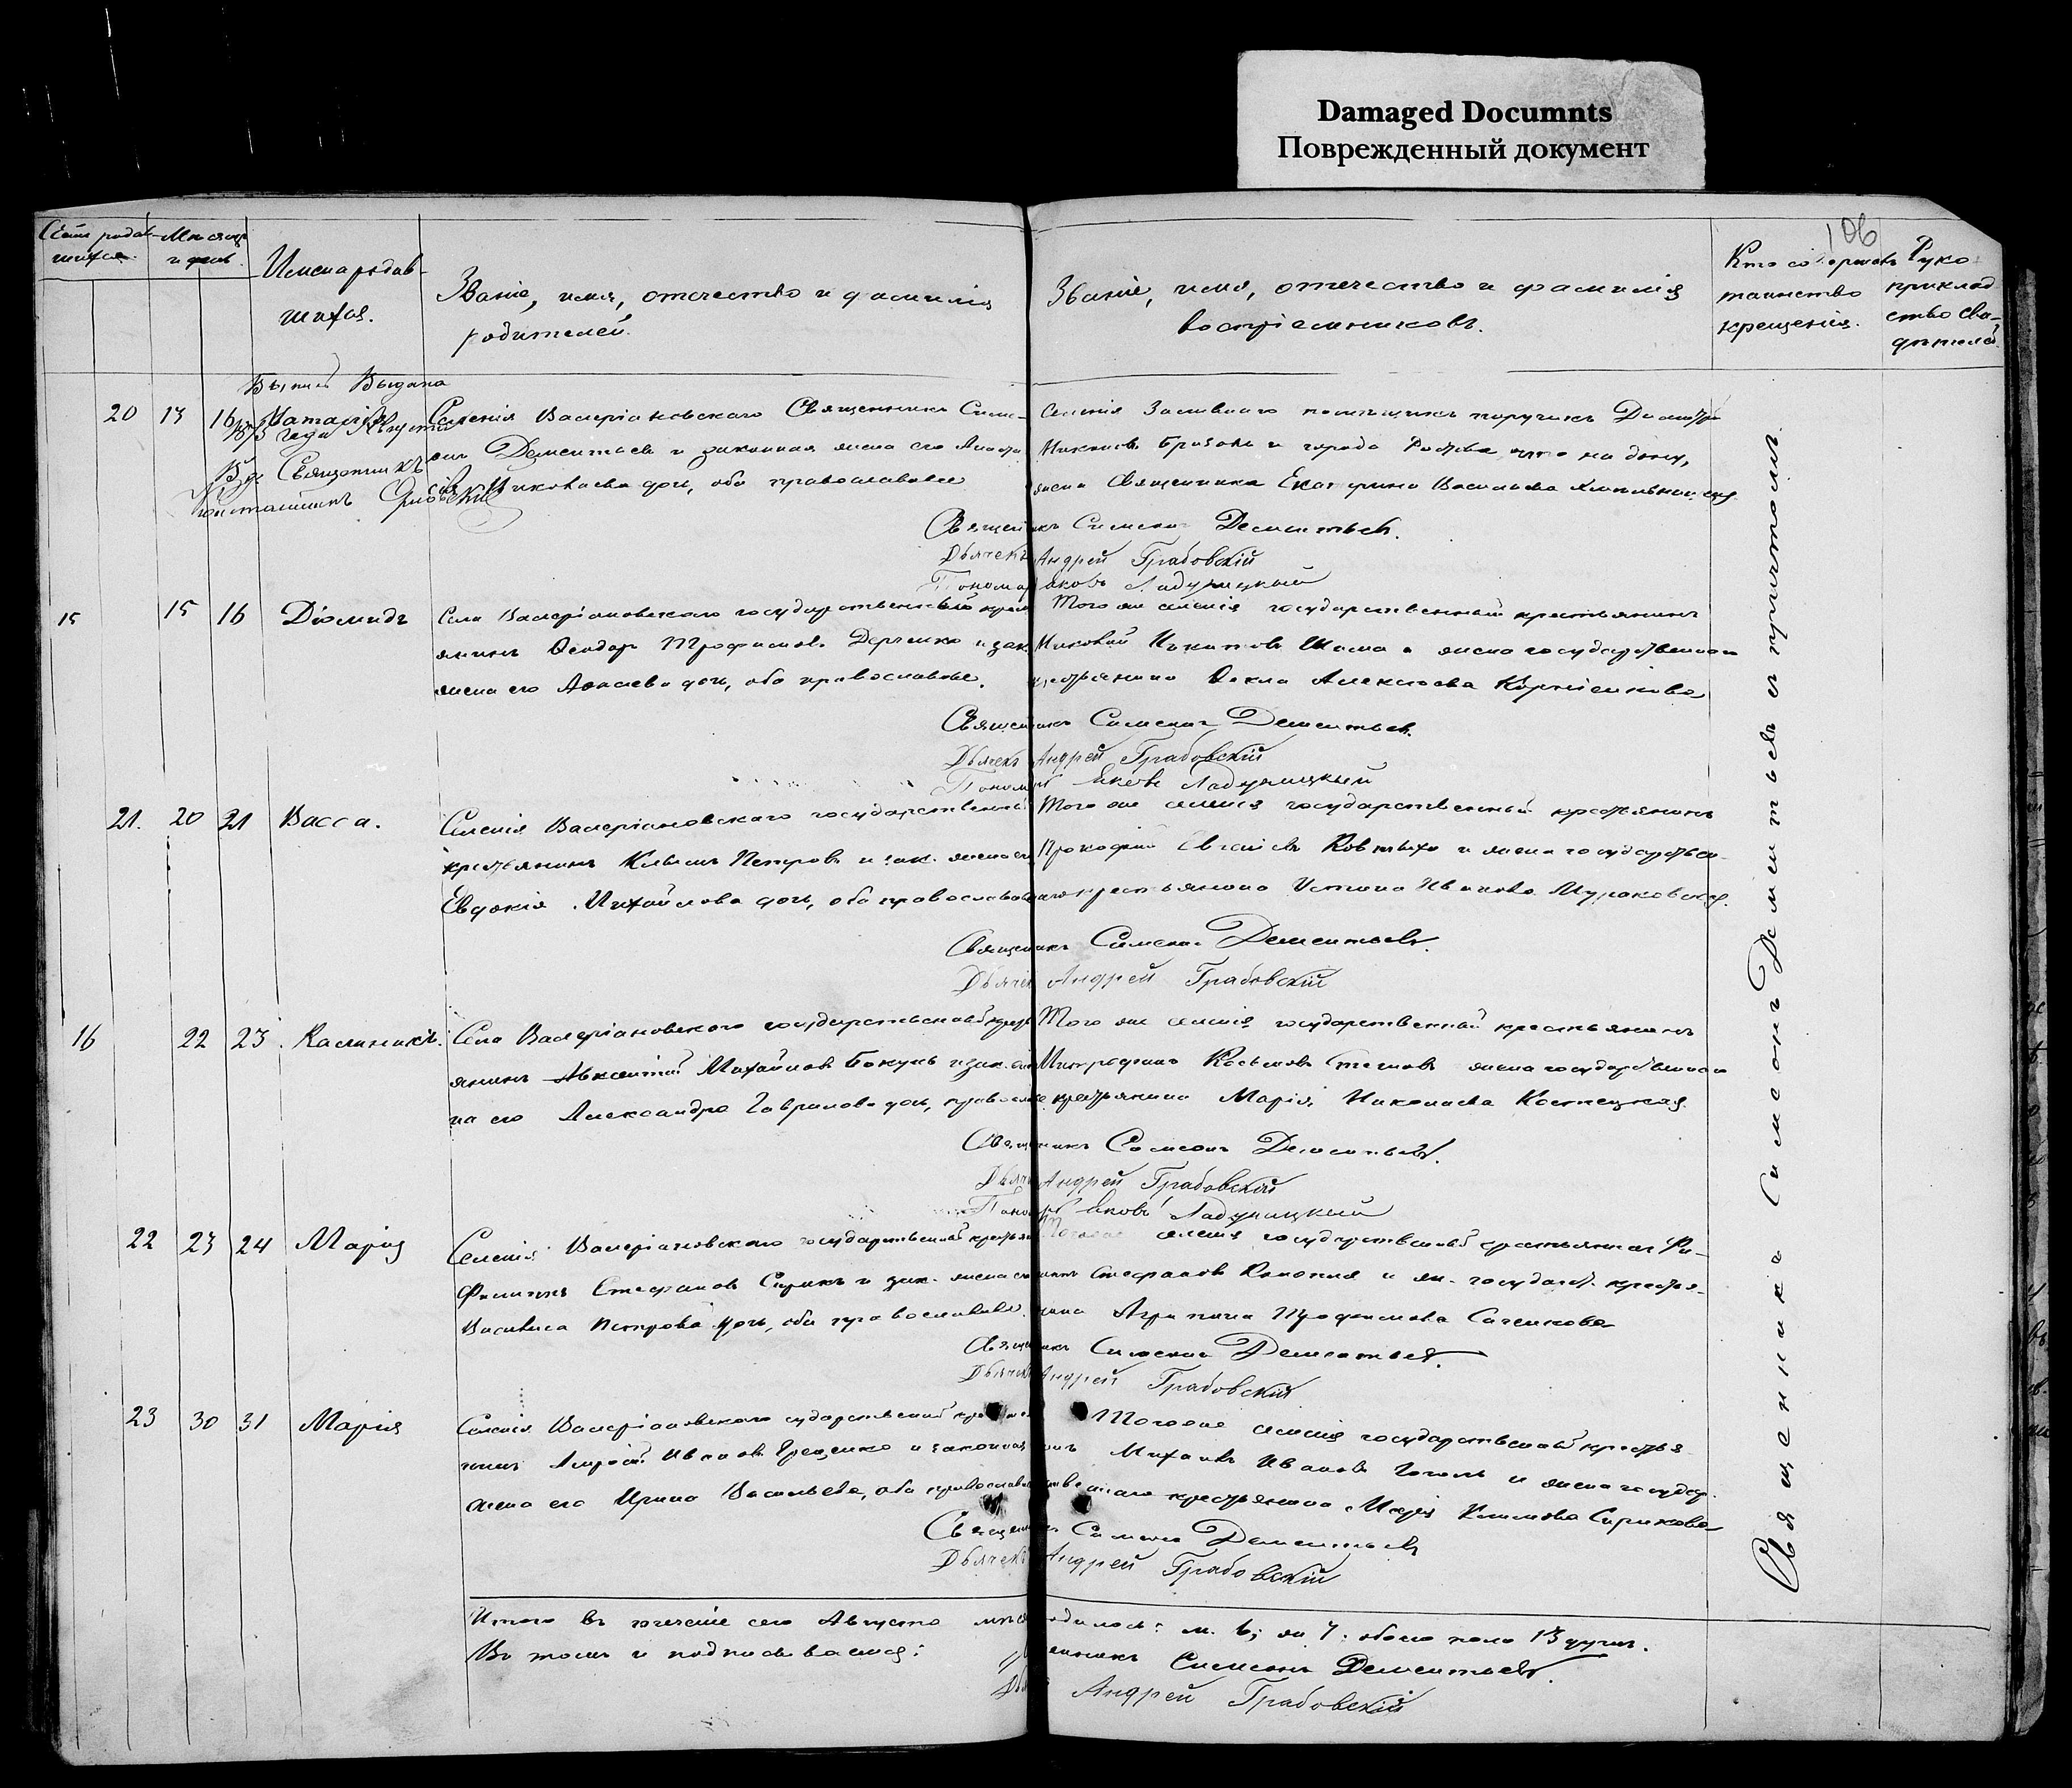 Damaged Documnts
Поврежденный документ
106
Счетъ родив-
шихся.
Месяцъ
и день.
Имена родив-
шихся.
Званіе, имя, отчество и фамилія
родителей.
Званіе, имя, отчество и фамилія
воспріемниковъ.
Кто совершалъ
таинство
крещенія.
Руко
приклад
ство сви-
детелей
20 13 16 Наталія
Выпись Выдана
1873 года Августа
Священникъ
Константинъ Орловскій
Селенія Валеріановскаго Священникъ Симе-
онъ Дементьевъ и законная жена его Анаста
сія Николаева дочь, оба православные
помещикъ поручикъ Дмитрій
и города Ростова что на дону,
жена Священника Екатерина Васильева
Священникъ Симеонъ Дементьевъ.
Дьячекъ Андрей Грабовскій
Пономарь Яковъ Ладужицкий
15 15 16 Діомидъ
Села Валеріановскаго государственный крест
янинъ Феодоръ Трофимовъ и зак.
жена его дочь, оба православные.
Того же селенія государственный крестьянинъ
Никитовъ и жена государственнаго
крестьянина Фекла Алексеева Корніенкова
Священникъ Симеонъ Дементьевъ.
Дьячекъ Андрей Грабовскій
Пономарь Яковъ Ладужицкий
21. 20 21 Васса.
Селенія Валеріановскаго государственный
крестьянинъ Климъ Петровъ и зак. жена его
Евдокія Михайлова дочь, оба православные
Того же селенія государственный крестьянинъ
Прокофій и жена государствен-
наго крестьянина Устина Иванова
Священникъ Симеонъ Дементьевъ.
Дьячекъ Андрей Грабовскій
16 22 23 Калиникъ.
Села Валеріановскаго государственный крест
янинъ Авксентій Михайловъ Бокунь и зак. же
на его Александра Гаврилова дочь, православные
Того же селенія государственный крестьянинъ
Митрофанъ жена государственнаго
крестьянина Марія Николаева Костецкая
Священникъ Симеонъ Дементьевъ.
Дьячекъ Андрей Грабовскій
Пономарь Яковъ Ладужицкий
22 23 24 Марія
Селенія Валеріановскаго государственный крестьян
Филиппъ Стефановъ Сирикъ и зак. жена его
Василиса Петрова дочь, оба православные.
Того же селенія государственный крестьянинъ Фи-
липъ Стефановъ и ж. государств. крестья-
нина Агрипина Трофимова
Священникъ Симеонъ Дементьевъ.
Дьячекъ Андрей Грабовскій
23 30 31 Марія
Селенія Валеріановскаго государственный крестья
нинъ Андрей Ивановъ и законная
жена его Ирина Васильева, оба православные
Того же селенія государственный крестья
нинъ Михаилъ Ивановъ Гоголь и жена государ
ственнаго крестьянина Марія Климова Сирикова
Священникъ Симеонъ Дементьевъ
Дьячекъ Андрей Грабовскій
Итого въ теченіе сего Августа месяца родилось: м. 6; ж 7; обоего пола 13 душъ.
Въ томъ и подписываемся:
Священникъ Симеонъ Дементьевъ.
Дьячекъ Андрей Грабовскій
Священникъ Симеонъ Дементьевъ съ причтомъ